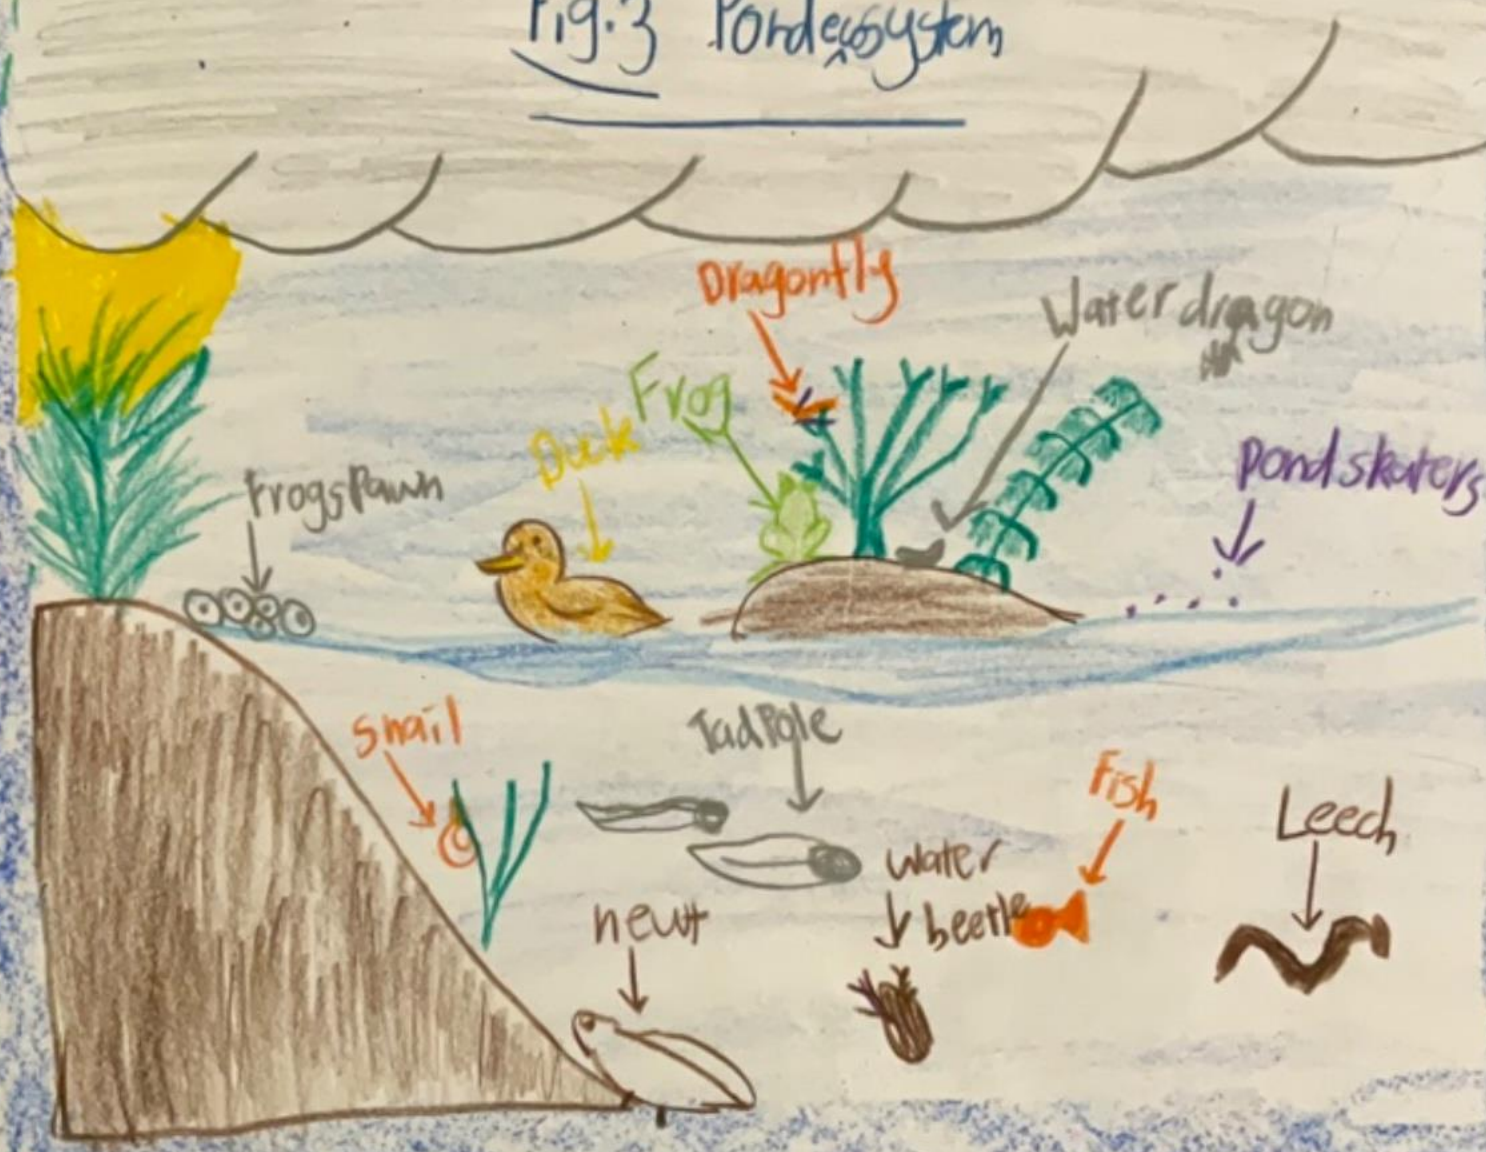 Fig.3 Pondecosystem
Dragonfly
Water dragon
Frog
Duck
Pond skaters
Frogspawn
Snail
Tadpole
Fish
Leech
water
beetle
newt